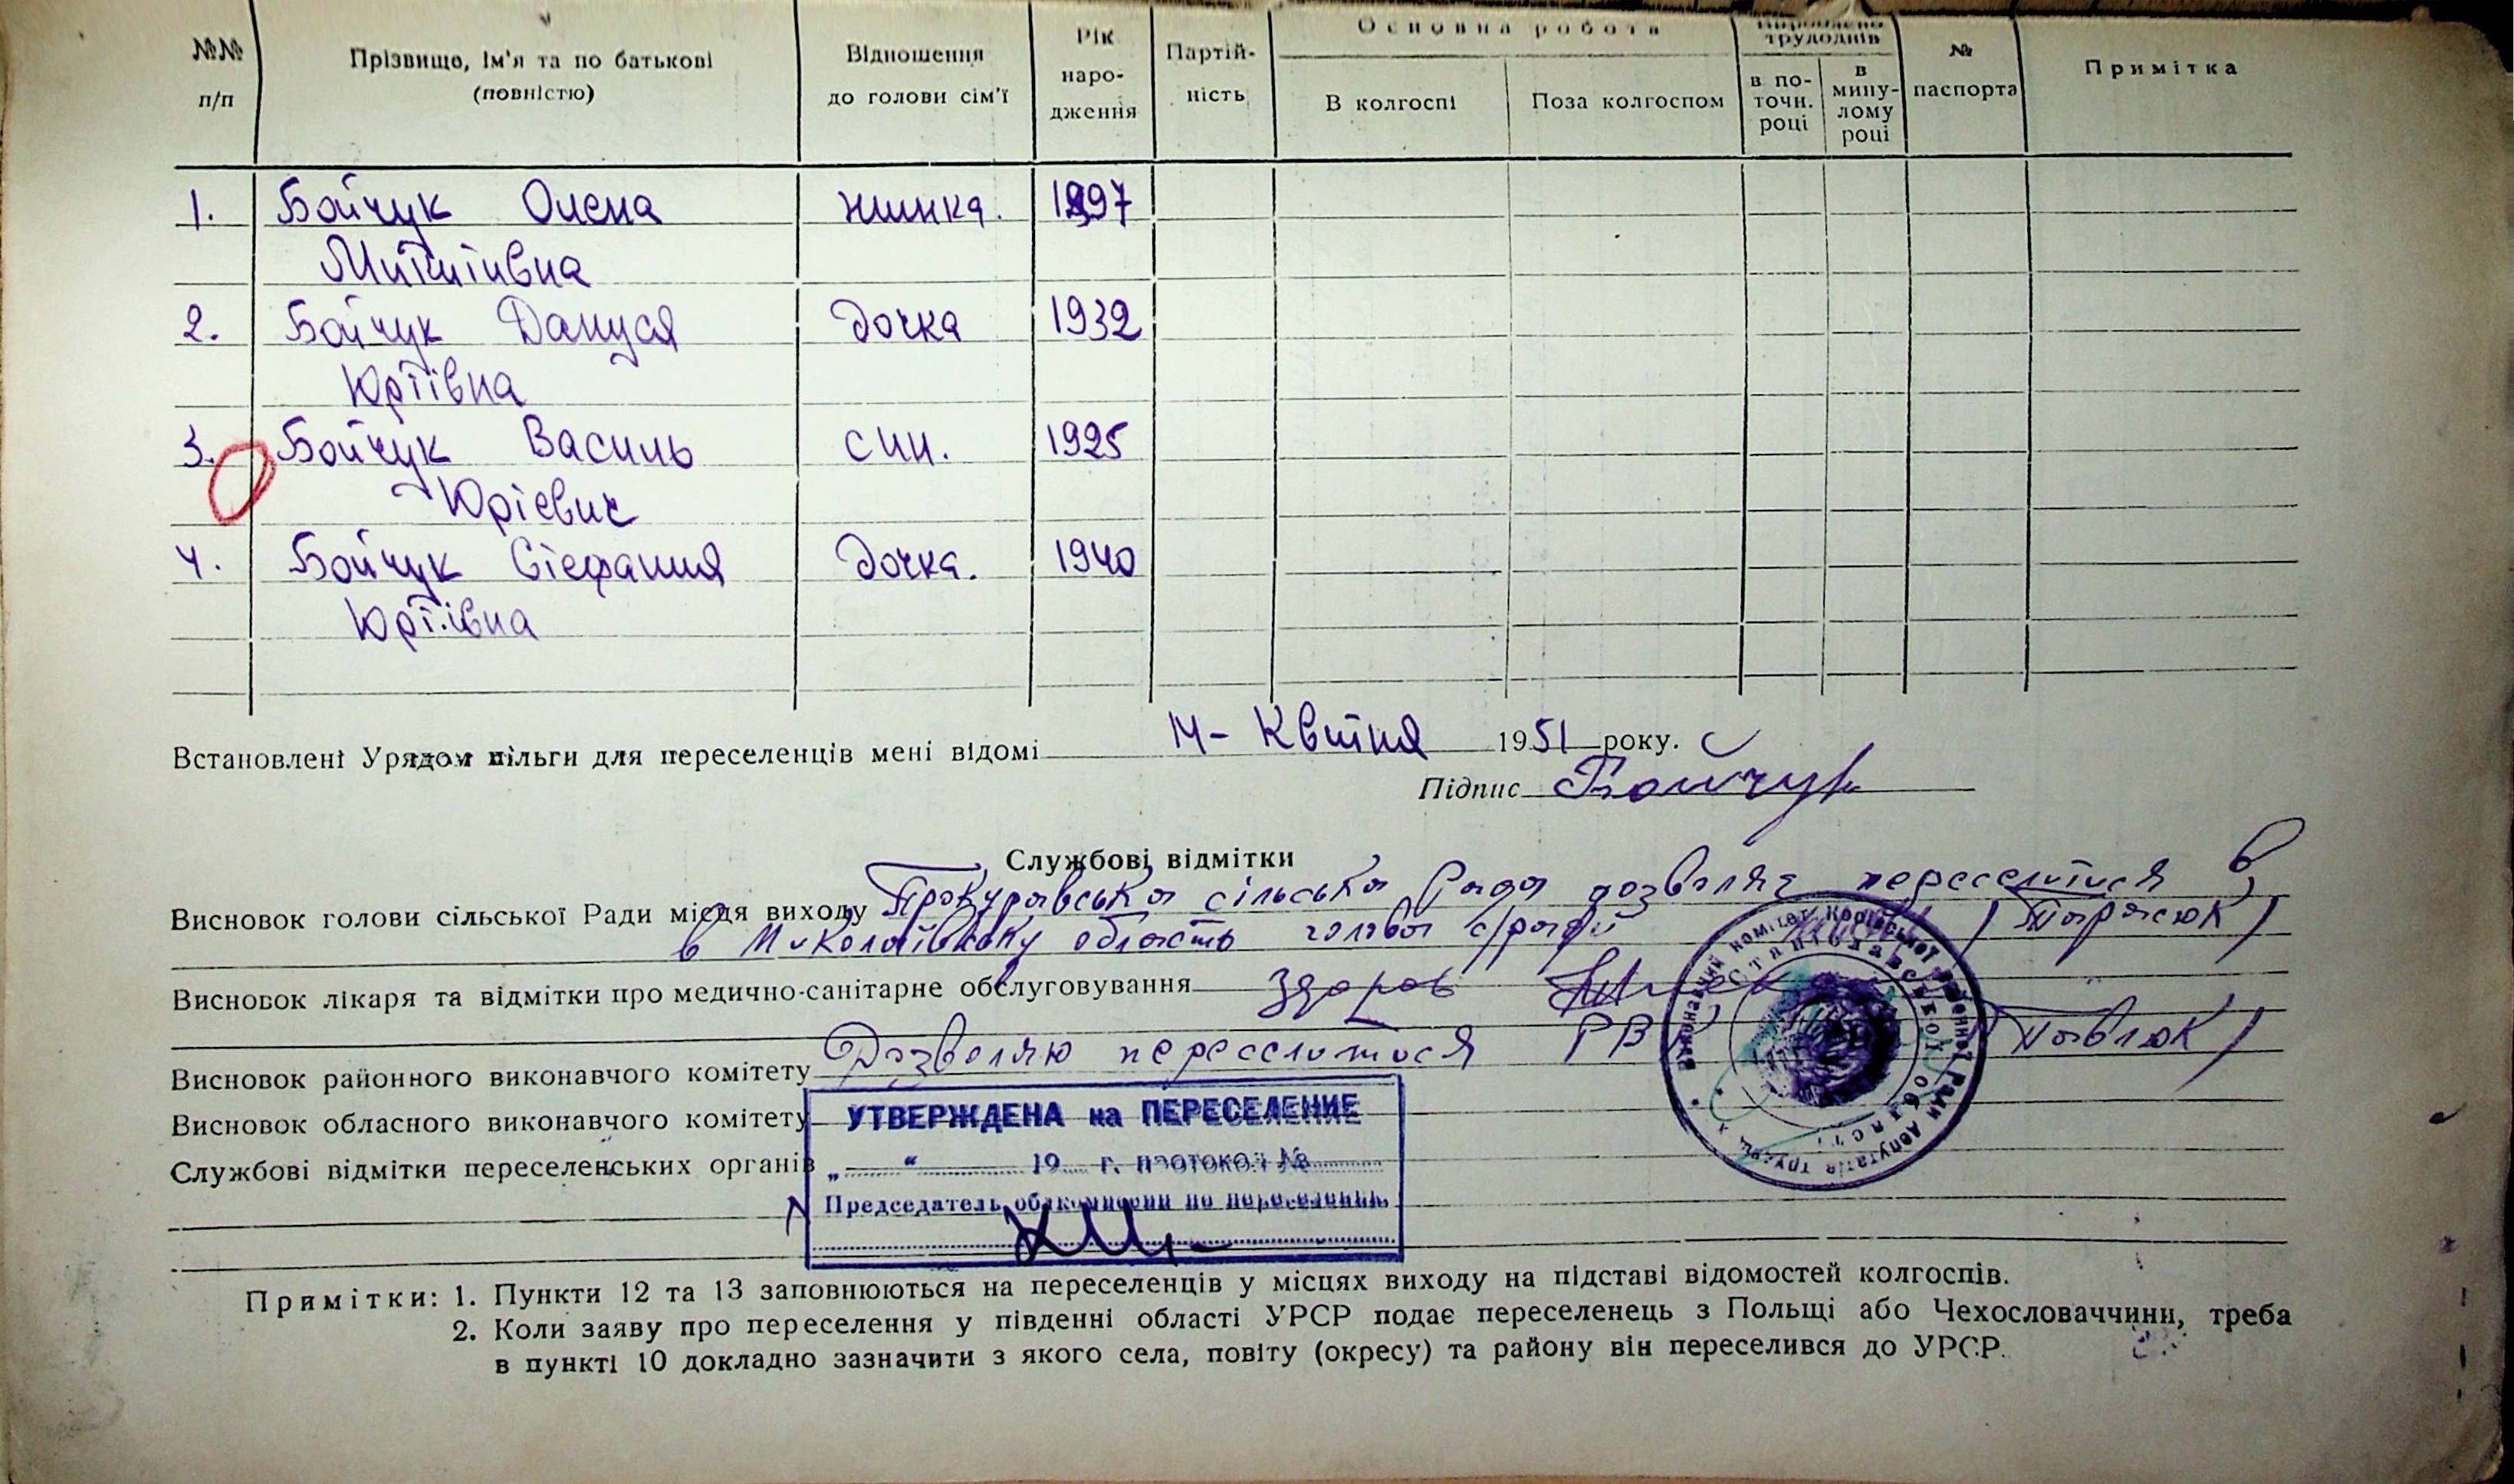 №№ п/п Прізвище, ім'я та по батькові (повністю) Відношення до голови сім'ї Рік народження Партійність Основна робота В колгоспі Поза колгоспом Вироблено трудоднів в поточн. році в минулому році № паспорта Примітка
1. Бойчук Олена жинка. 1897
2. Бойчук Дануся дочка 1932
Юріївна
3. Бойчук Василь син. 1925
Юрієвич
4. Бойчук Стефания дочка. 1940
Юріївна
Встановлені Урядом пільги для переселенців мені відомі 14- Квітня 1951 року.
Підпис Бойчук
Службові відмітки
Висновок голови сільської Ради місця виходу Прокуравська сільська Рада дозволяє переселитися в
в Миколаївську область голова с/ради /Тарасюк/
Висновок лікаря та відмітки про медично-санітарне обслуговування здоров
Висновок районного виконавчого комітету Дозволяю переселитися РВК /Павлюк/
Висновок обласного виконавчого комітету
Службові відмітки переселенських органів
УТВЕРЖДЕНА на ПЕРЕСЕЛЕНИЕ
„ “ 19 г. протокол №
Председатель облкомиссии по переселению
Виконавчий комітет районної Ради депутатів трудящих
Станіславської області
Примітки: 1. Пункти 12 та 13 заповнюються на переселенців у місцях виходу на підставі відомостей колгоспів.
2. Коли заяву про переселення у південні області УРСР подає переселенець з Польщі або Чехословаччини, треба
в пункті 10 докладно зазначити з якого села, повіту (окресу) та району він переселився до УРСР.